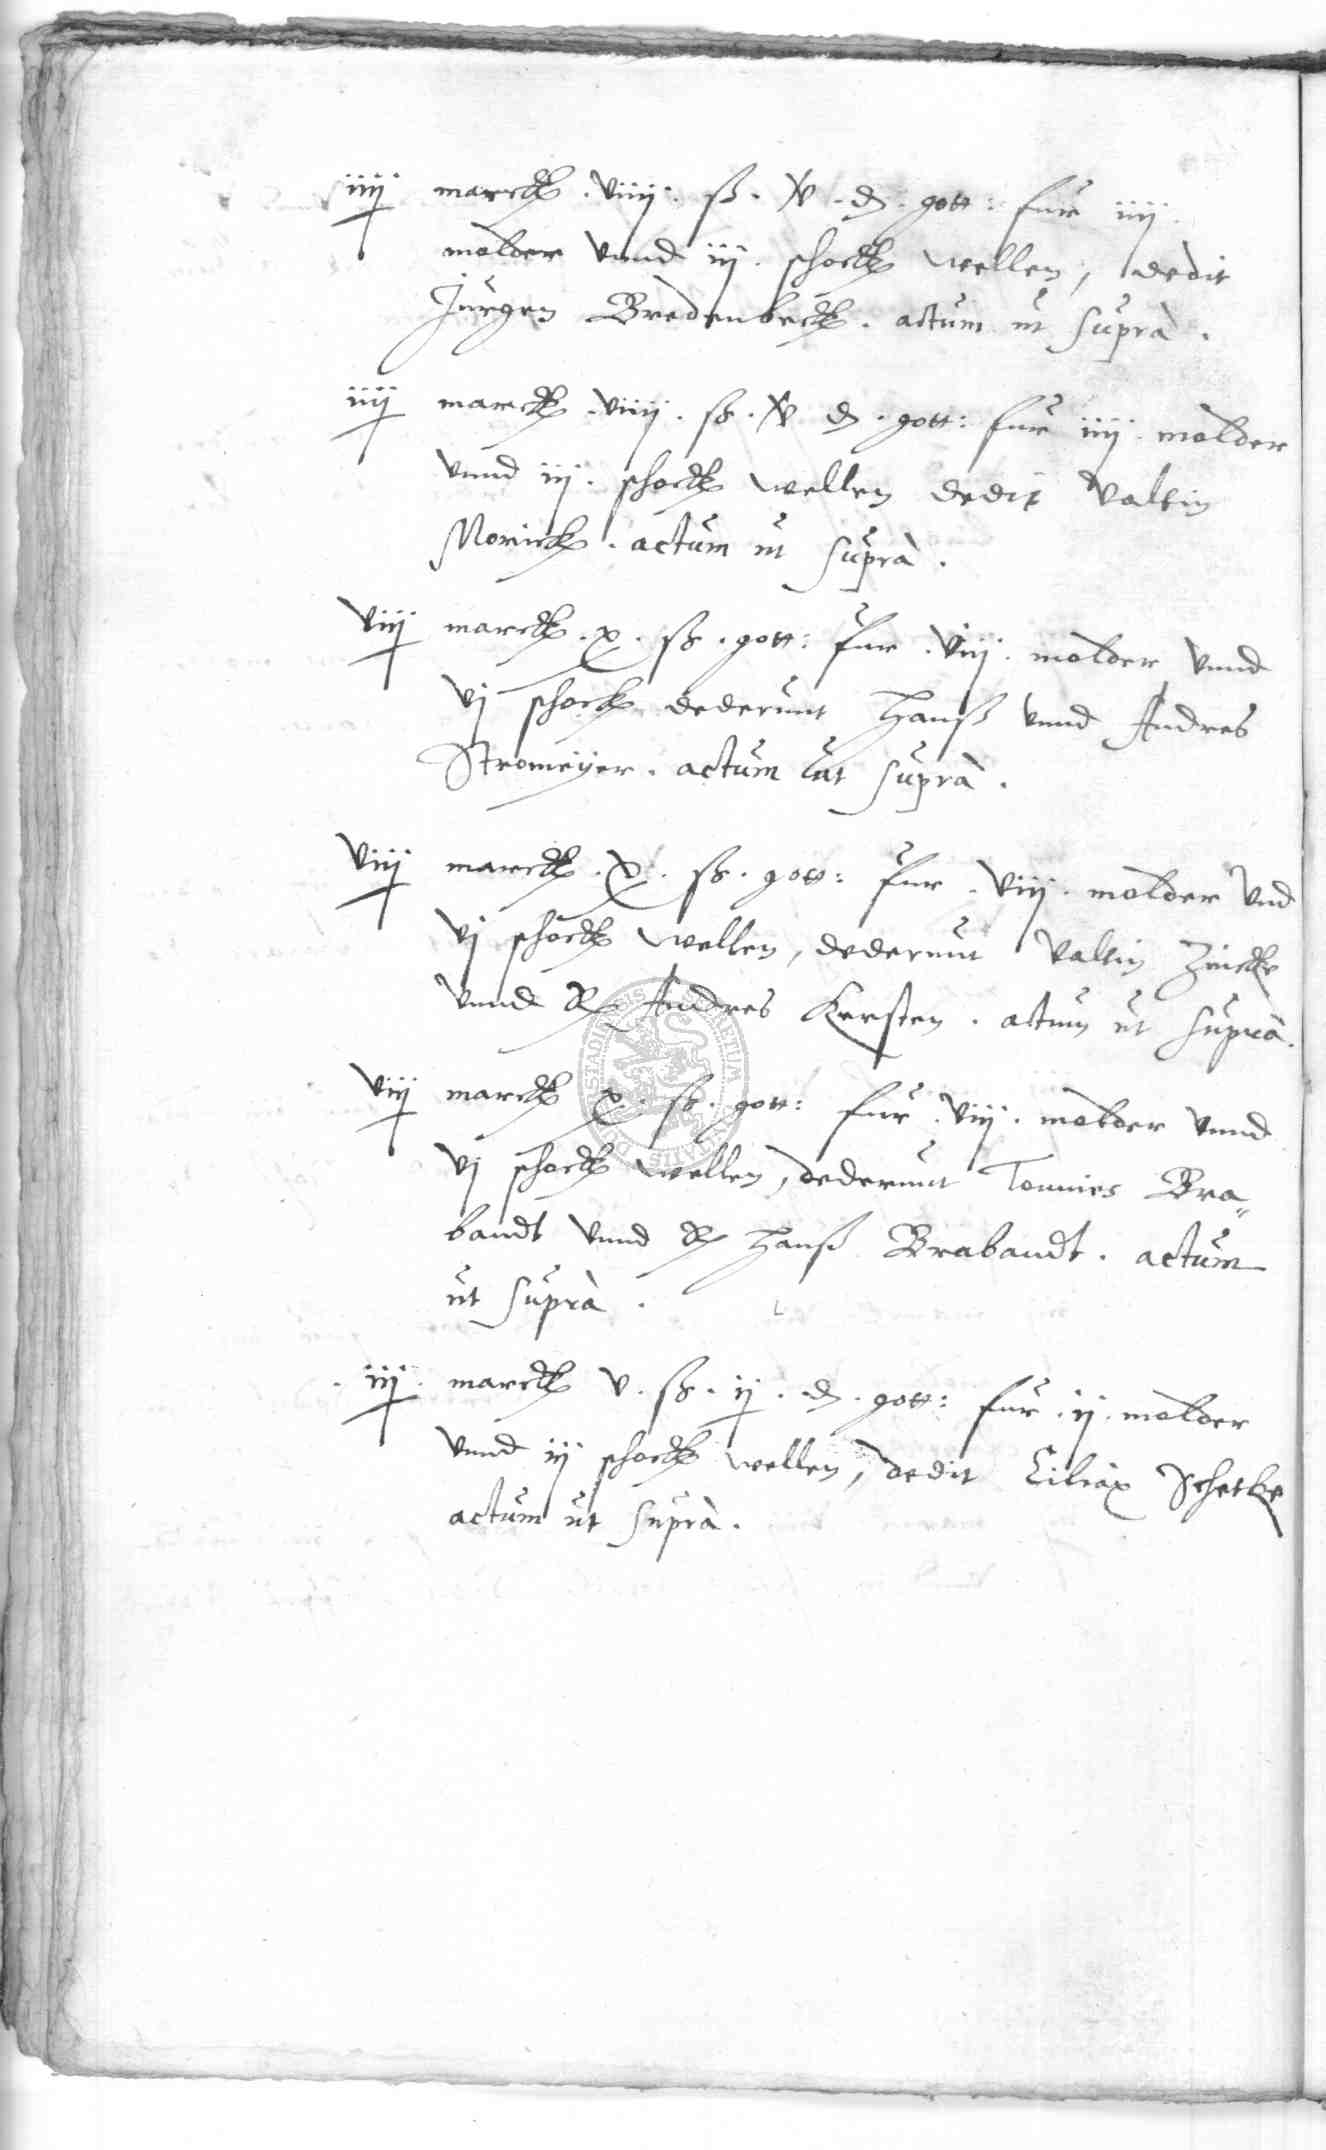 iiij marck . viiij . ß . v . d . gott: fur iiij .
molder vnnd iij . schock wellen, dedit
Jurgen Bredenbeck . actum ut supra .
iiij marck . viiij . ß . v d . gott: fur iiij . molder
vnnd iij . schock wellen dedit Valtin
Morick . actum ut supra .
viij marck . x . ß . gott: fur . viij . molder vnnd
vj schock dederunt Hanß vnnd Andres
Stromeyer . actum ut supra .
viij marck . x . ß . gott: fur . viij . molder vnd
vj schock wellen, dederunt Valtin Zincke
vnnd Andres Kersten . actum ut supra .
viij marck x . ß . gott: fur . viij . molder vnnd
vj schock wellen, dederunt Tonnies Bra„
bandt vnnd Hanß Brabandt . actum
ut supra .
. iij . marck v . ß . ij . d . gott: fur . ij . molder
vnnd iij schock wellen, dedit Ciliax Schetke
actum ut supra .